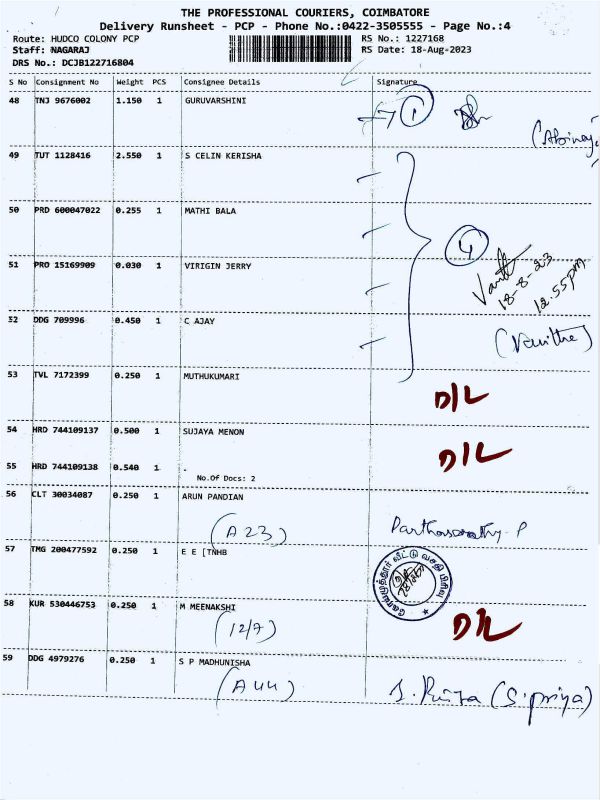 THE PROFESSIONAL COURIERS, COIMBATORE
Delivery Runsheet - PCP - Phone No.:0422-3505555 - Page No.:4
Route: HUDCO COLONY PCP RS No.: 1227168
Staff: NAGARAJ RS Date: 18-Aug-2023
DRS No.: DCJB122716804
S No Consignment No Weight PCS Consignee Details Signature
48 TNJ 9676002 1.150 1 GURUVARSHINI 1
(Abinaj
49 TUT 1128416 2.550 1 S CELIN KERISHA
50 PRD 600047022 0.255 1 MATHI BALA
4
51 PRO 15169909 0.030 1 VIRIGIN JERRY
18-8-23
12.55pm
52 DDG 709996 0.450 1 C AJAY
(Vanitha)
53 TVL 7172399 0.250 1 MUTHUKUMARI
D/L
54 HRD 744109137 0.500 1 SUJAYA MENON
D/L
55 HRD 744109138 0.540 1 .
No.Of Docs: 2
56 CLT 30034087 0.250 1 ARUN PANDIAN
(A23) Parthasarathy. P
57 TMG 200477592 0.250 1 E E [TNHB
58 KUR 530446753 0.250 1 M MEENAKSHI
(12/7) D/L
59 DDG 4979276 0.250 1 S P MADHUNISHA
(A44) S. Priya (S.priya)